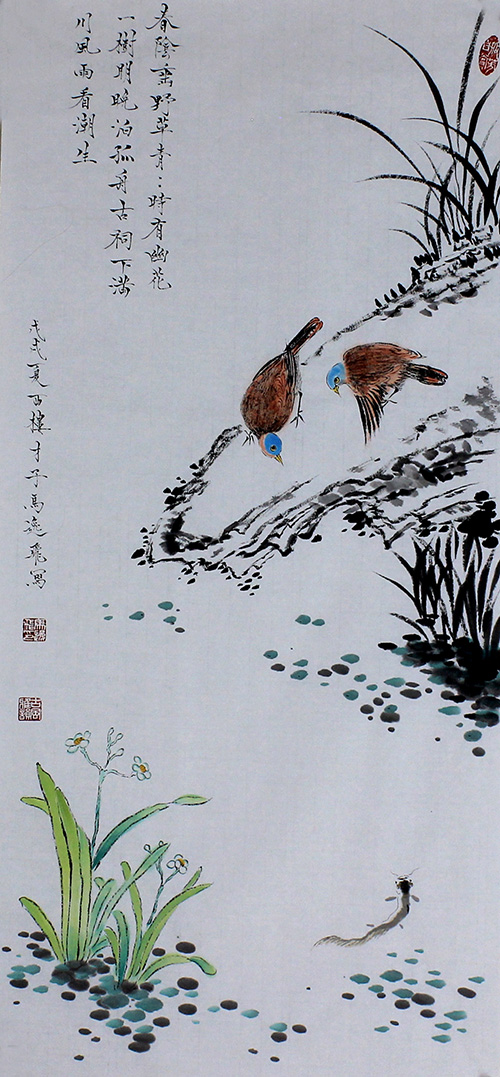 春陰垂野草青：時有幽花
一樹明晚泊孤舟古祠下滿
川風雨看潮生
戊戌夏西樓才子馬逸飛寫